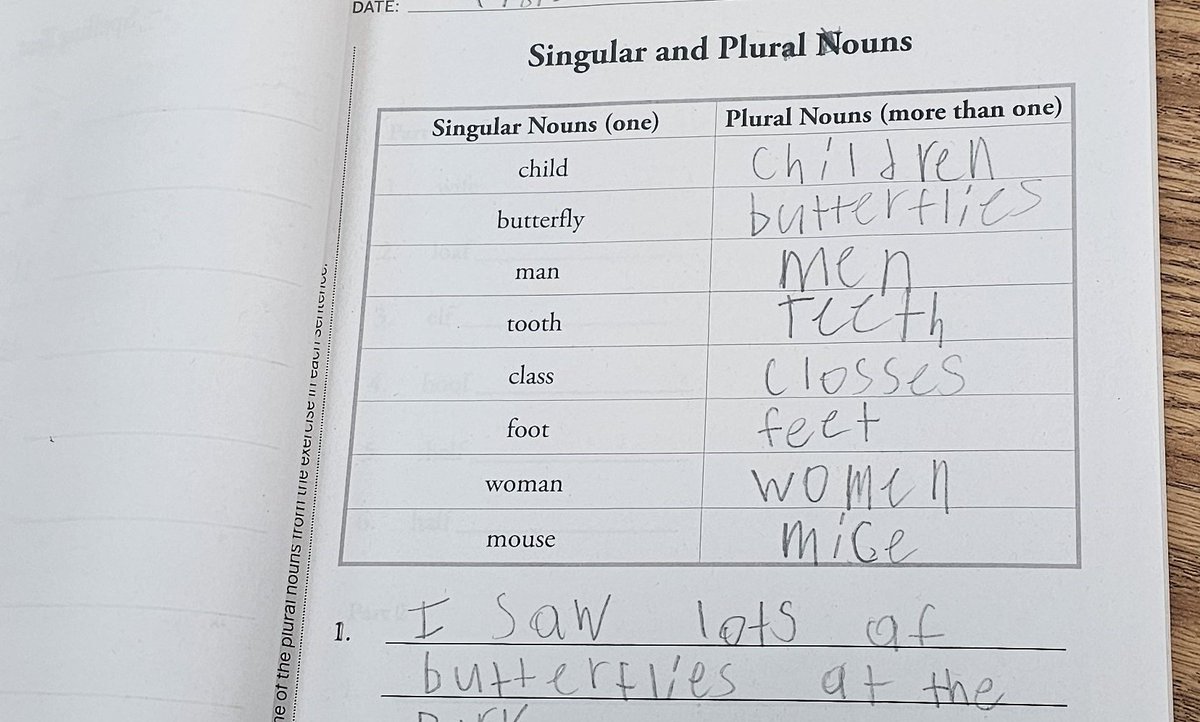 DATE:
Singular and Plural Nouns
Singular Nouns (one) Plural Nouns (more than one)
child children
butterfly butterflies
man men
tooth Teeth
class closses
foot feet
woman women
mouse mice
1. I saw lots of
butterflies at the
of the plural nouns from the exercise in each sentence.